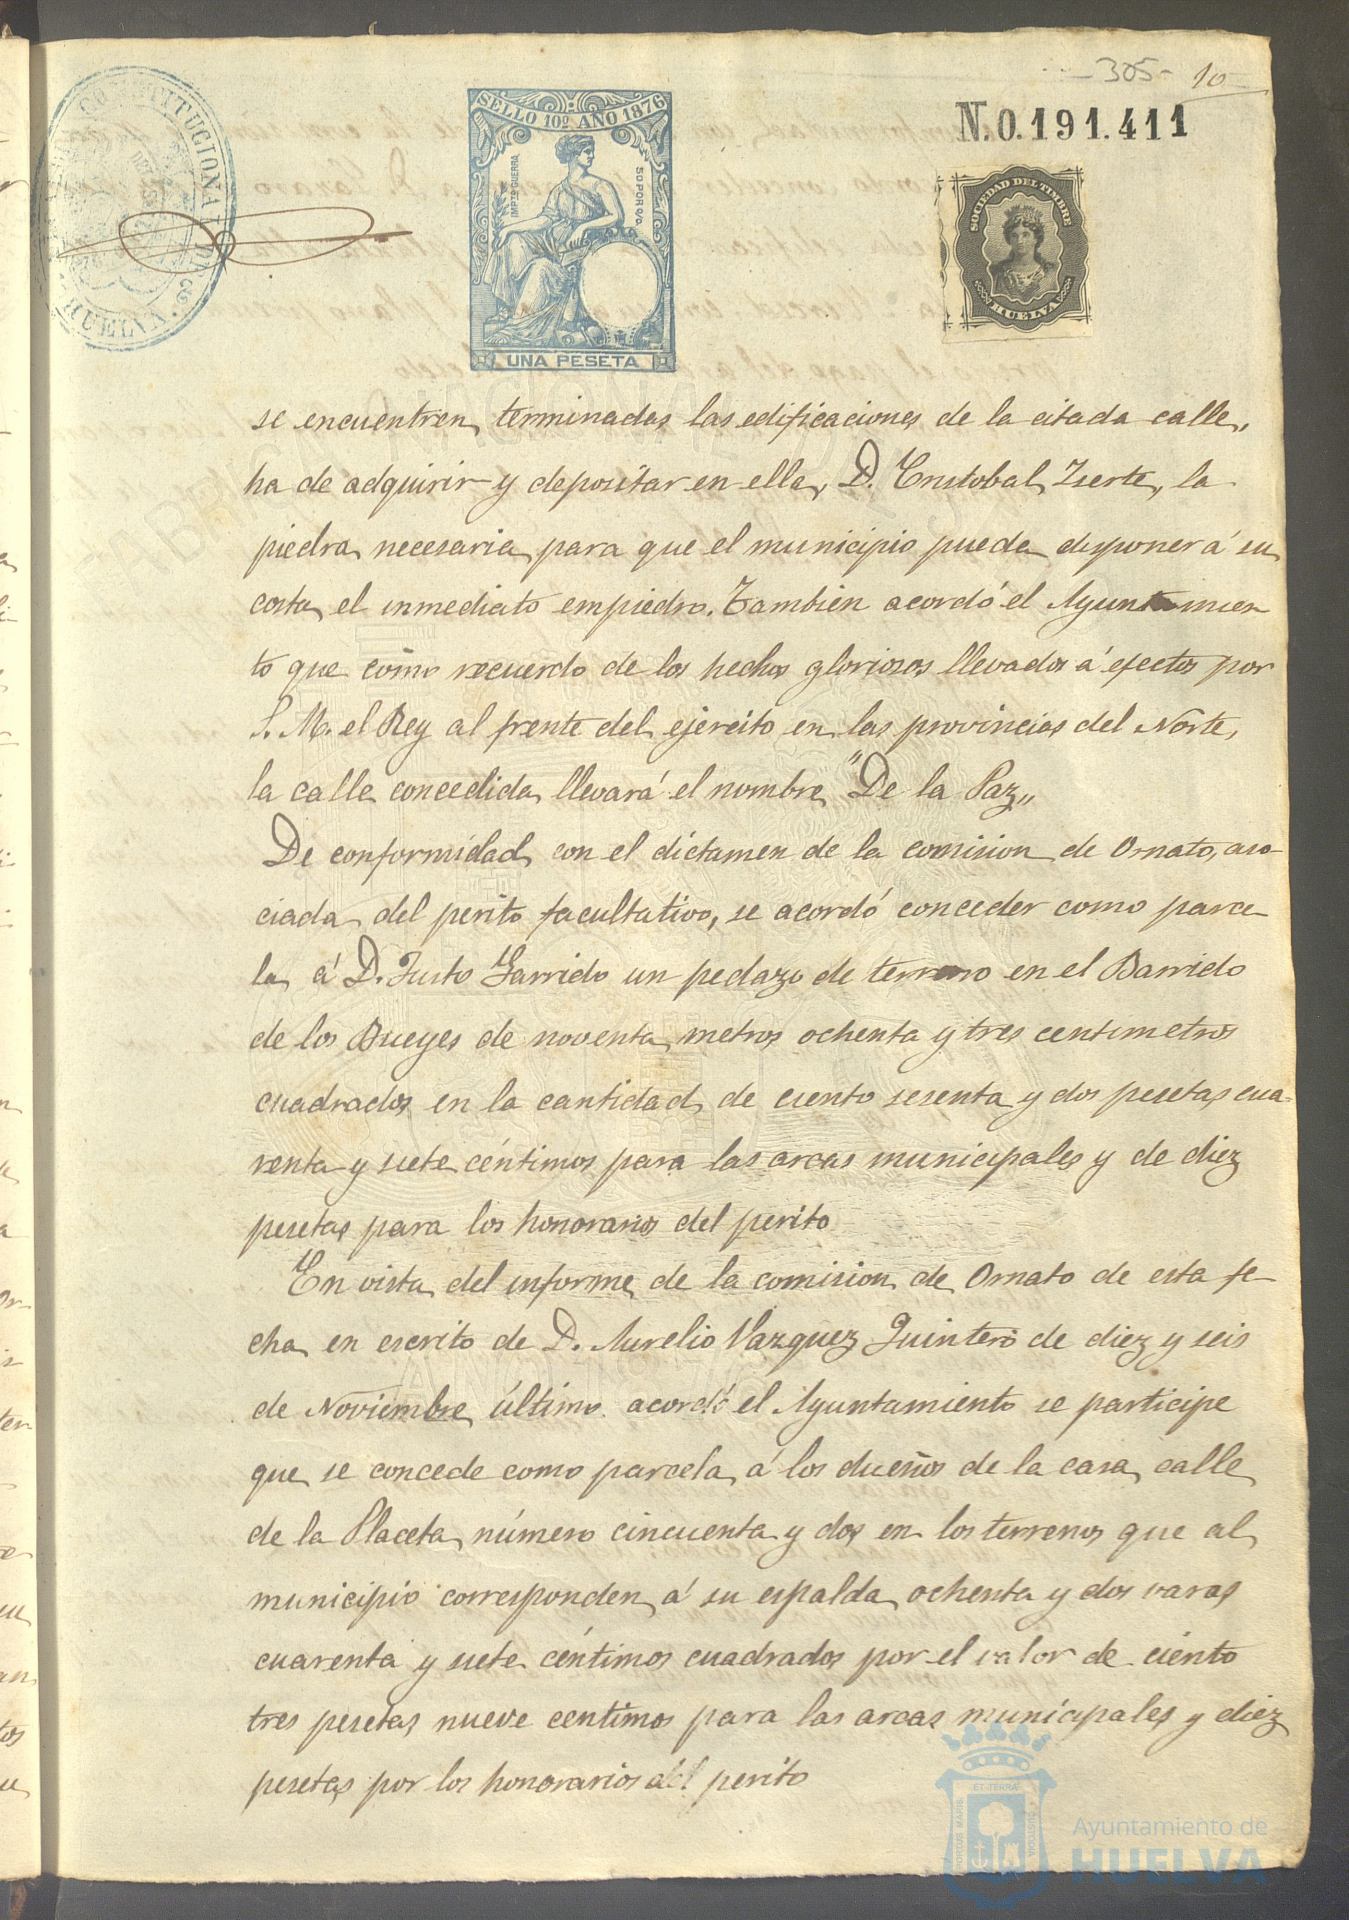 -305- 10
N.0.191.411
CONSTITUCIONAL DE
HUELVA
SELLO 10º AÑO 1876
IMPTO GUERRA
50 POR C/O.
UNA PESETA
SOCIEDAD DEL TIMBRE
HUELVA
se encuentren terminadas las edificaciones de la citada calle,
ha de adquirir y depositar en ella, D. Cristobal Iserte, la
piedra necesaria para que el municipio pueda disponer á su
costa el inmediato empiedro. También acordó el Ayuntamien
to que como recuerdo de los hechos gloriosos llevados á efectos por
S. M. el Rey al frente del ejército en las provincias del Norte,
la calle concedida llevará el nombre "De la Paz„
De conformidad con el dictamen de la comision de Ornato, aso-
ciada del perito facultativo, se acordó conceder como parce-
la á D. Justo Garrido un pedazo de terreno en el Barrido
de los Bueyes de noventa metros ochenta y tres centimetros
cuadrados en la cantidad de ciento sesenta y dos pesetas cua-
renta y siete céntimos para las arcas municipales y de diez
pesetas para los honorarios del perito
En vista del informe de la comision de Ornato de esta fe-
cha en escrito de D. Aurelio Vazquez Quintero de diez y seis
de Noviembre último acordó el Ayuntamiento se participe
que se concede como parcela á los dueños de la casa calle
de la Placeta número cincuenta y dos en los terrenos que al
municipio corresponden á su espalda ochenta y dos varas
cuarenta y siete céntimos cuadrados por el valor de ciento
tres pesetas nueve centimos para las arcas municipales y diez
pesetas por los honorarios del perito
PORTUS MARIS ET TERRÆ CUSTODIA
Ayuntamiento de
HUELVA